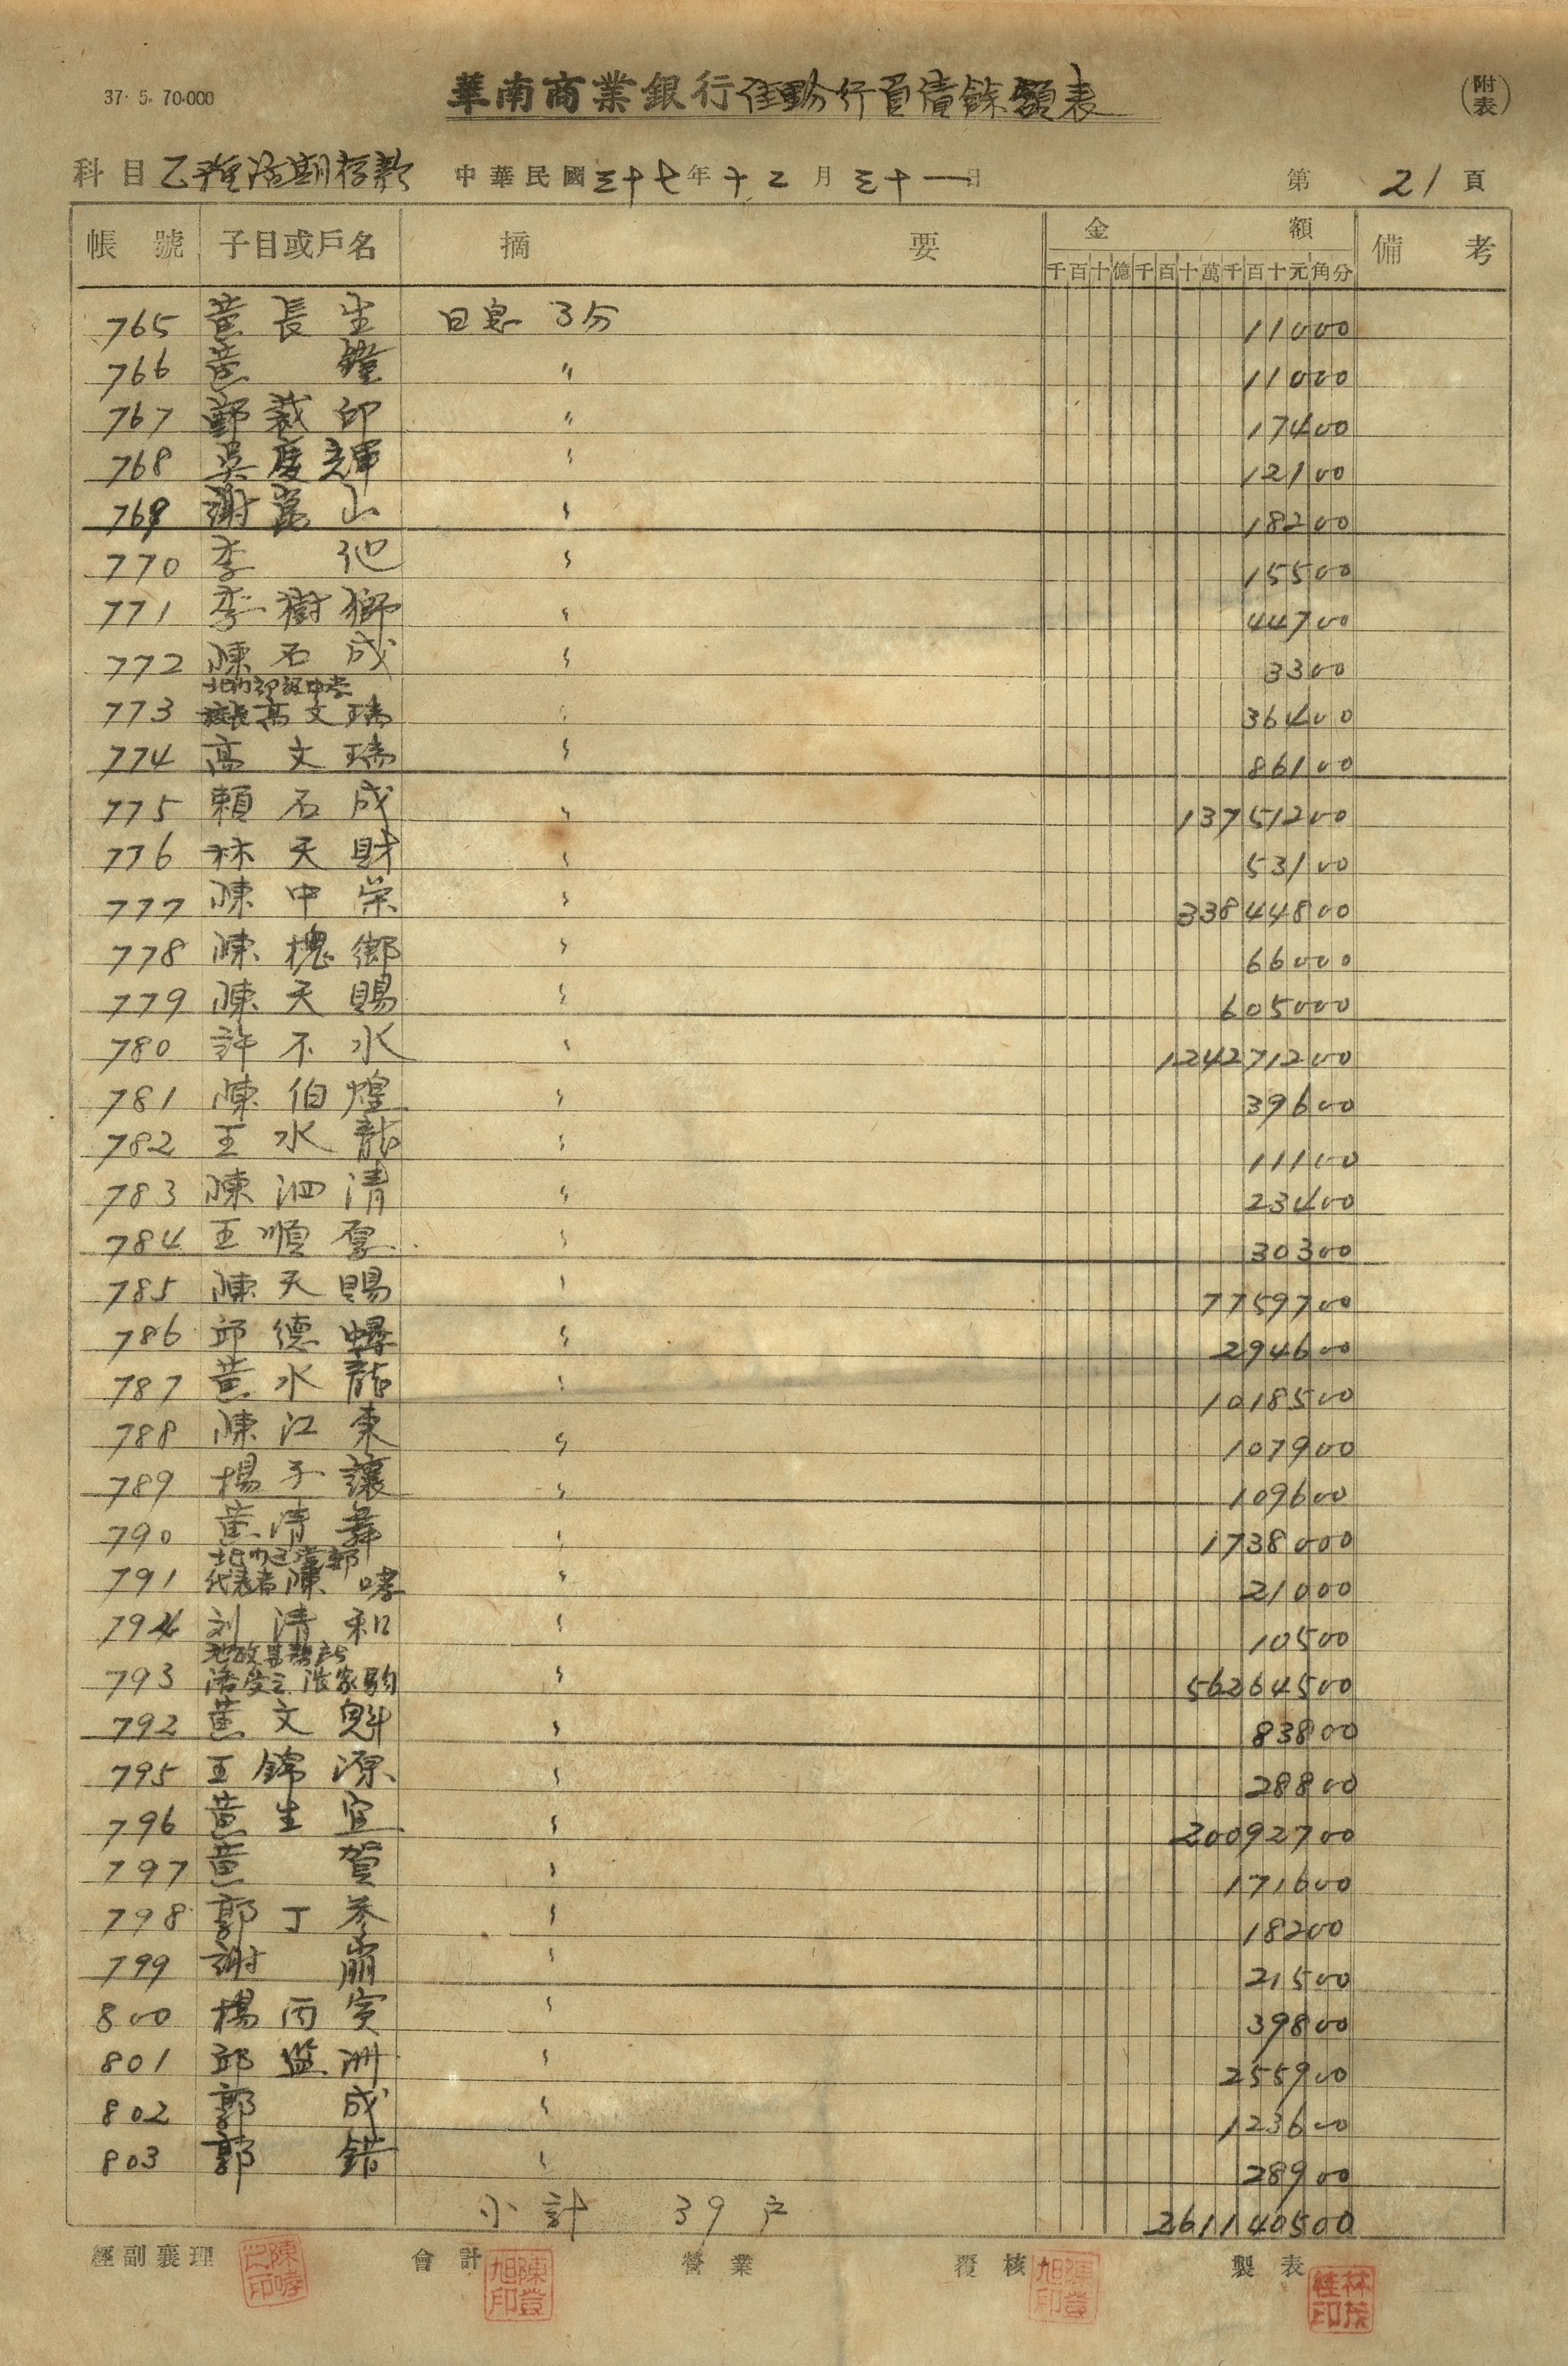 37. 5. 70.000
華南商業銀行佳里分行負債餘額表
(附表)
科目 乙種活期存款 中華民國三十七年十二月三十一日 第 21 頁
帳號 子目或戶名 摘要 金額 備考
千百十億千百十萬千百十元角分
765 黃長生 日息 3分 11000
766 黃鐘 〃 11000
767 郭裁印 〃 17400
768 吳慶輝 〃 12100
769 謝崑山 〃 18200
770 李池 〃 15500
771 李樹獅 〃 44700
772 陳石成 〃 3300
北門初級中学
773 校長高文瑞 〃 36400
774 高文瑞 〃 86100
775 賴石成 〃 13751200
776 林天財 〃 53100
777 陳中栄 〃 33844800
778 陳槐鄉 〃 66000
779 陳天賜 〃 605000
780 許不水 〃 124271200
781 陳伯煌 〃 39600
782 王水龍 〃 11100
783 陳泗清 〃 23400
784 王順 〃 30300
785 陳天賜 〃 7759700
786 邱德 〃 294600
787 黃水龍 〃 1018500
788 陳江東 〃 107900
789 楊子讓 〃 109600
790 黃清舞 〃 1738000
791 代表者陳哮 〃 21000
794 刘清和 〃 10500
793 〃 56264500
792 黃文魁 〃 83800
795 王錦源 〃 28800
796 黃生宜 〃 20092700
797 黃賀 〃 171600
798 郭丁参 〃 18200
799 謝崩 〃 21500
800 楊丙寅 〃 39800
801 邱监洲 〃 255900
802 郭成 〃 123600
803 郭錯 〃 28900
小計 39戶 261140500
經副襄理 會計 營業 覆核 製表
陳哮之印 陳登旭印 陳登旭印 林茂桂印